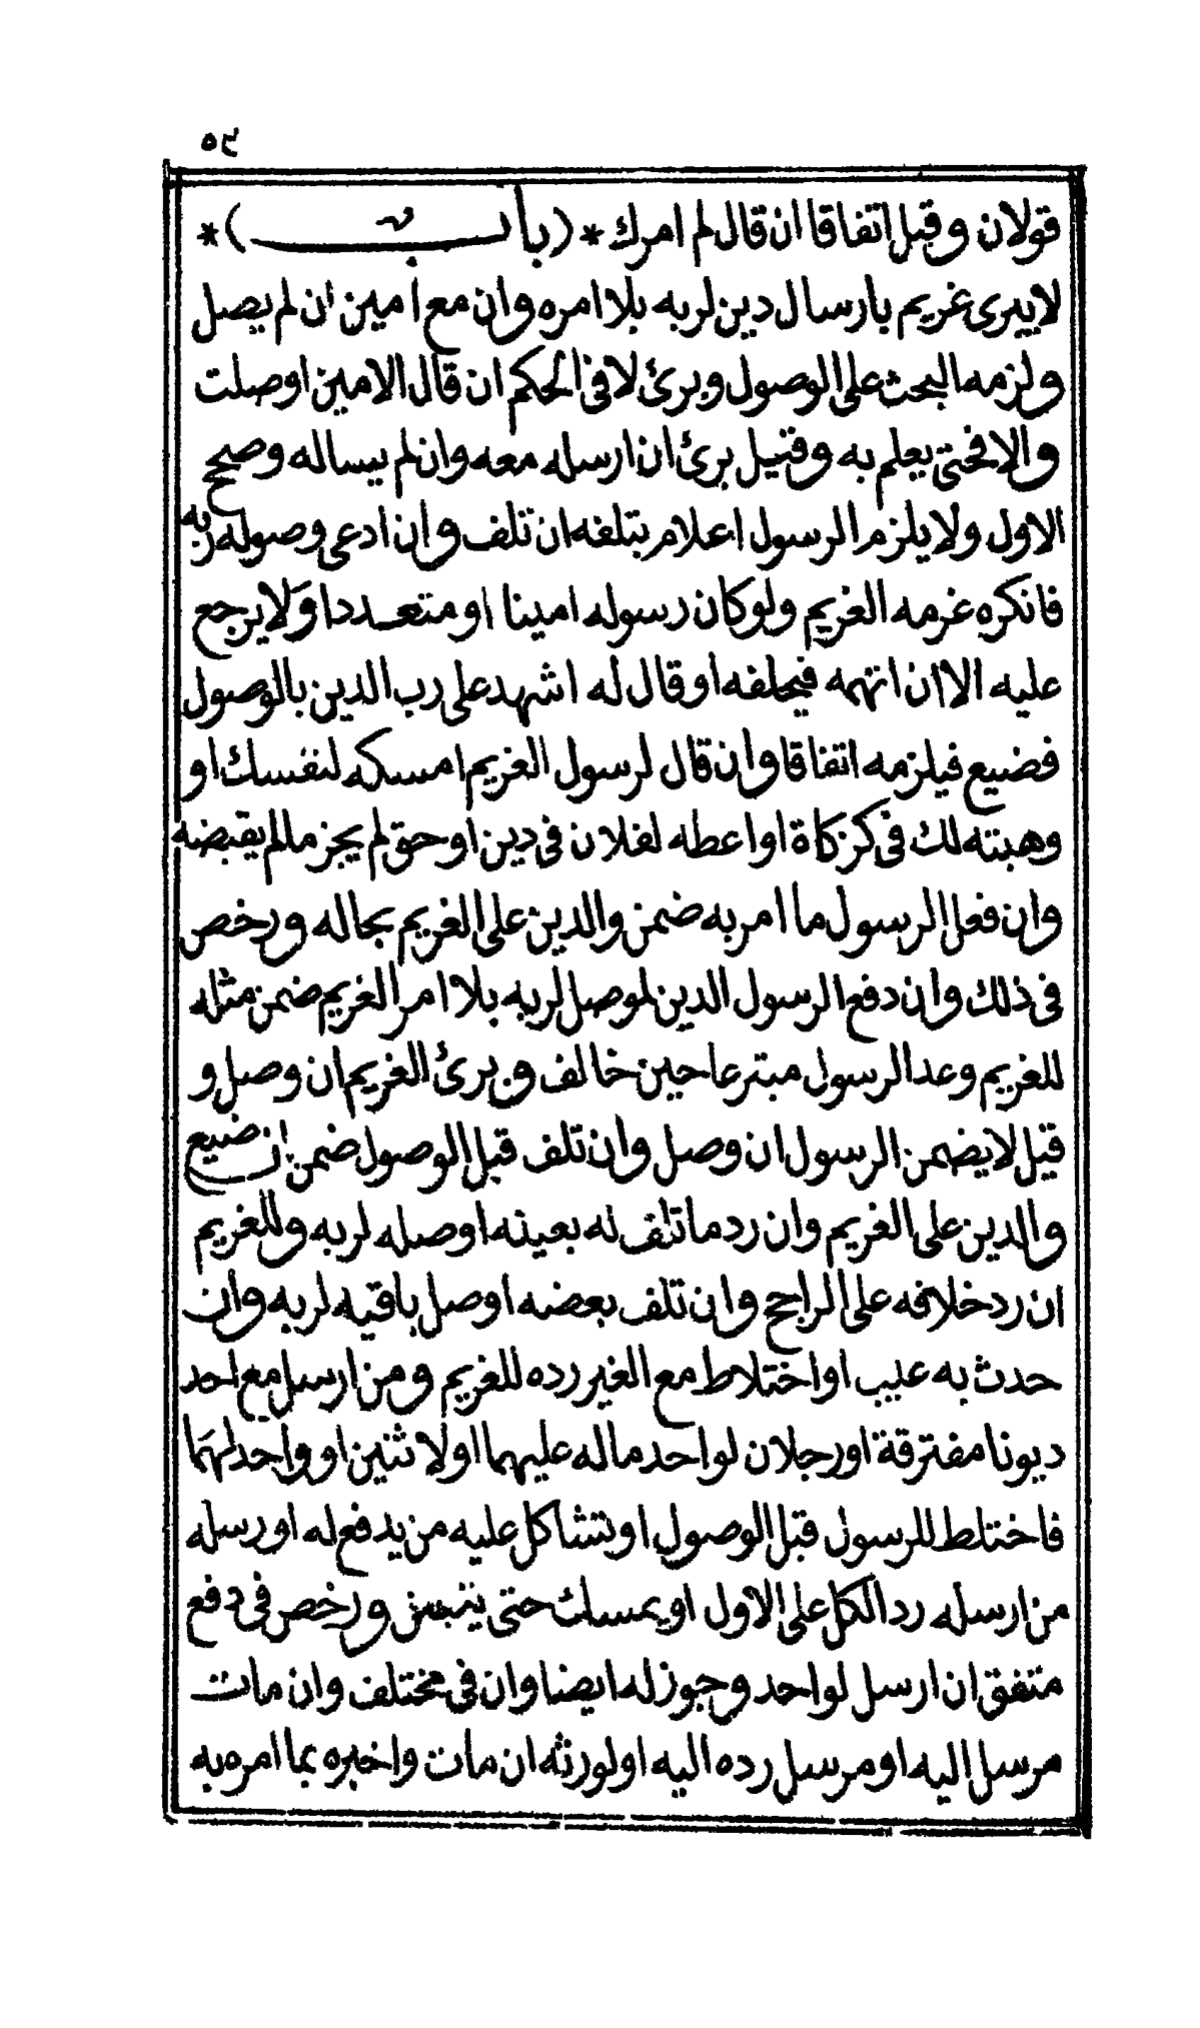 ٥٩
قولان وقيل اتفاقا ان قال لم امرك * (باب) *
لا يبرى غريم بارسال دين لربه بلا امره وان مع امين ان لم يصل
ولزمه البحث على الوصول وبرئ لا في الحكم ان قال الامين اوصلت
والا فحتى يعلم به وقيل برئ ان ارسله معه وان لم يساله وصحح
الاول ولا يلزم الرسول اعلام بتلفه ان تلف وان ادعى وصوله ربه
فانكره غرمه الغريم ولو كان رسوله امينا او متعددا ولا يرجع
عليه الا ان اتهمه فيحلفه او قال له اشهد على رب الدين بالوصول
فضيع فيلزمه اتفاقا وان قال لرسول الغريم امسكه لنفسك او
وهبته لك في كزكاة او اعطه لفلان في دين او حق لم يجز ما لم يقبضه
وان فعل الرسول ما امر به ضمن والدين على الغريم بحاله ورخص
في ذلك وان دفع الرسول الدين لموصل لربه بلا امر الغريم ضمن مثله
للغريم وعد الرسول مبترعا حين خالف وبرئ الغريم ان وصل و
قيل لا يضمن الرسول ان وصل وان تلف قبل الوصول ضمن ان ضيع
والدين على الغريم وان رد ما تلف له بعينه اوصله لربه وللغريم
ان رد خلافه على الراجح وان تلف بعضه اوصل باقيه لربه وان
حدث به عيب او اختلاط مع الغير رده للغريم ومن ارسل مع احد
ديونا مفترقة او رجلان لواحد ما له عليهما او لاثنين او واحد لهما
فاختلط للرسول قبل الوصول او تشاكل عليه من يدفع له او رسله
من ارسله رد الكل على الاول او يمسك حتى يتبين ورخص في دفع
متفق ان ارسل لواحد وجوز له ايضا وان في مختلف وان مات
مرسل اليه او مرسل رده اليه او لورثته ان مات واخبره بما امره به